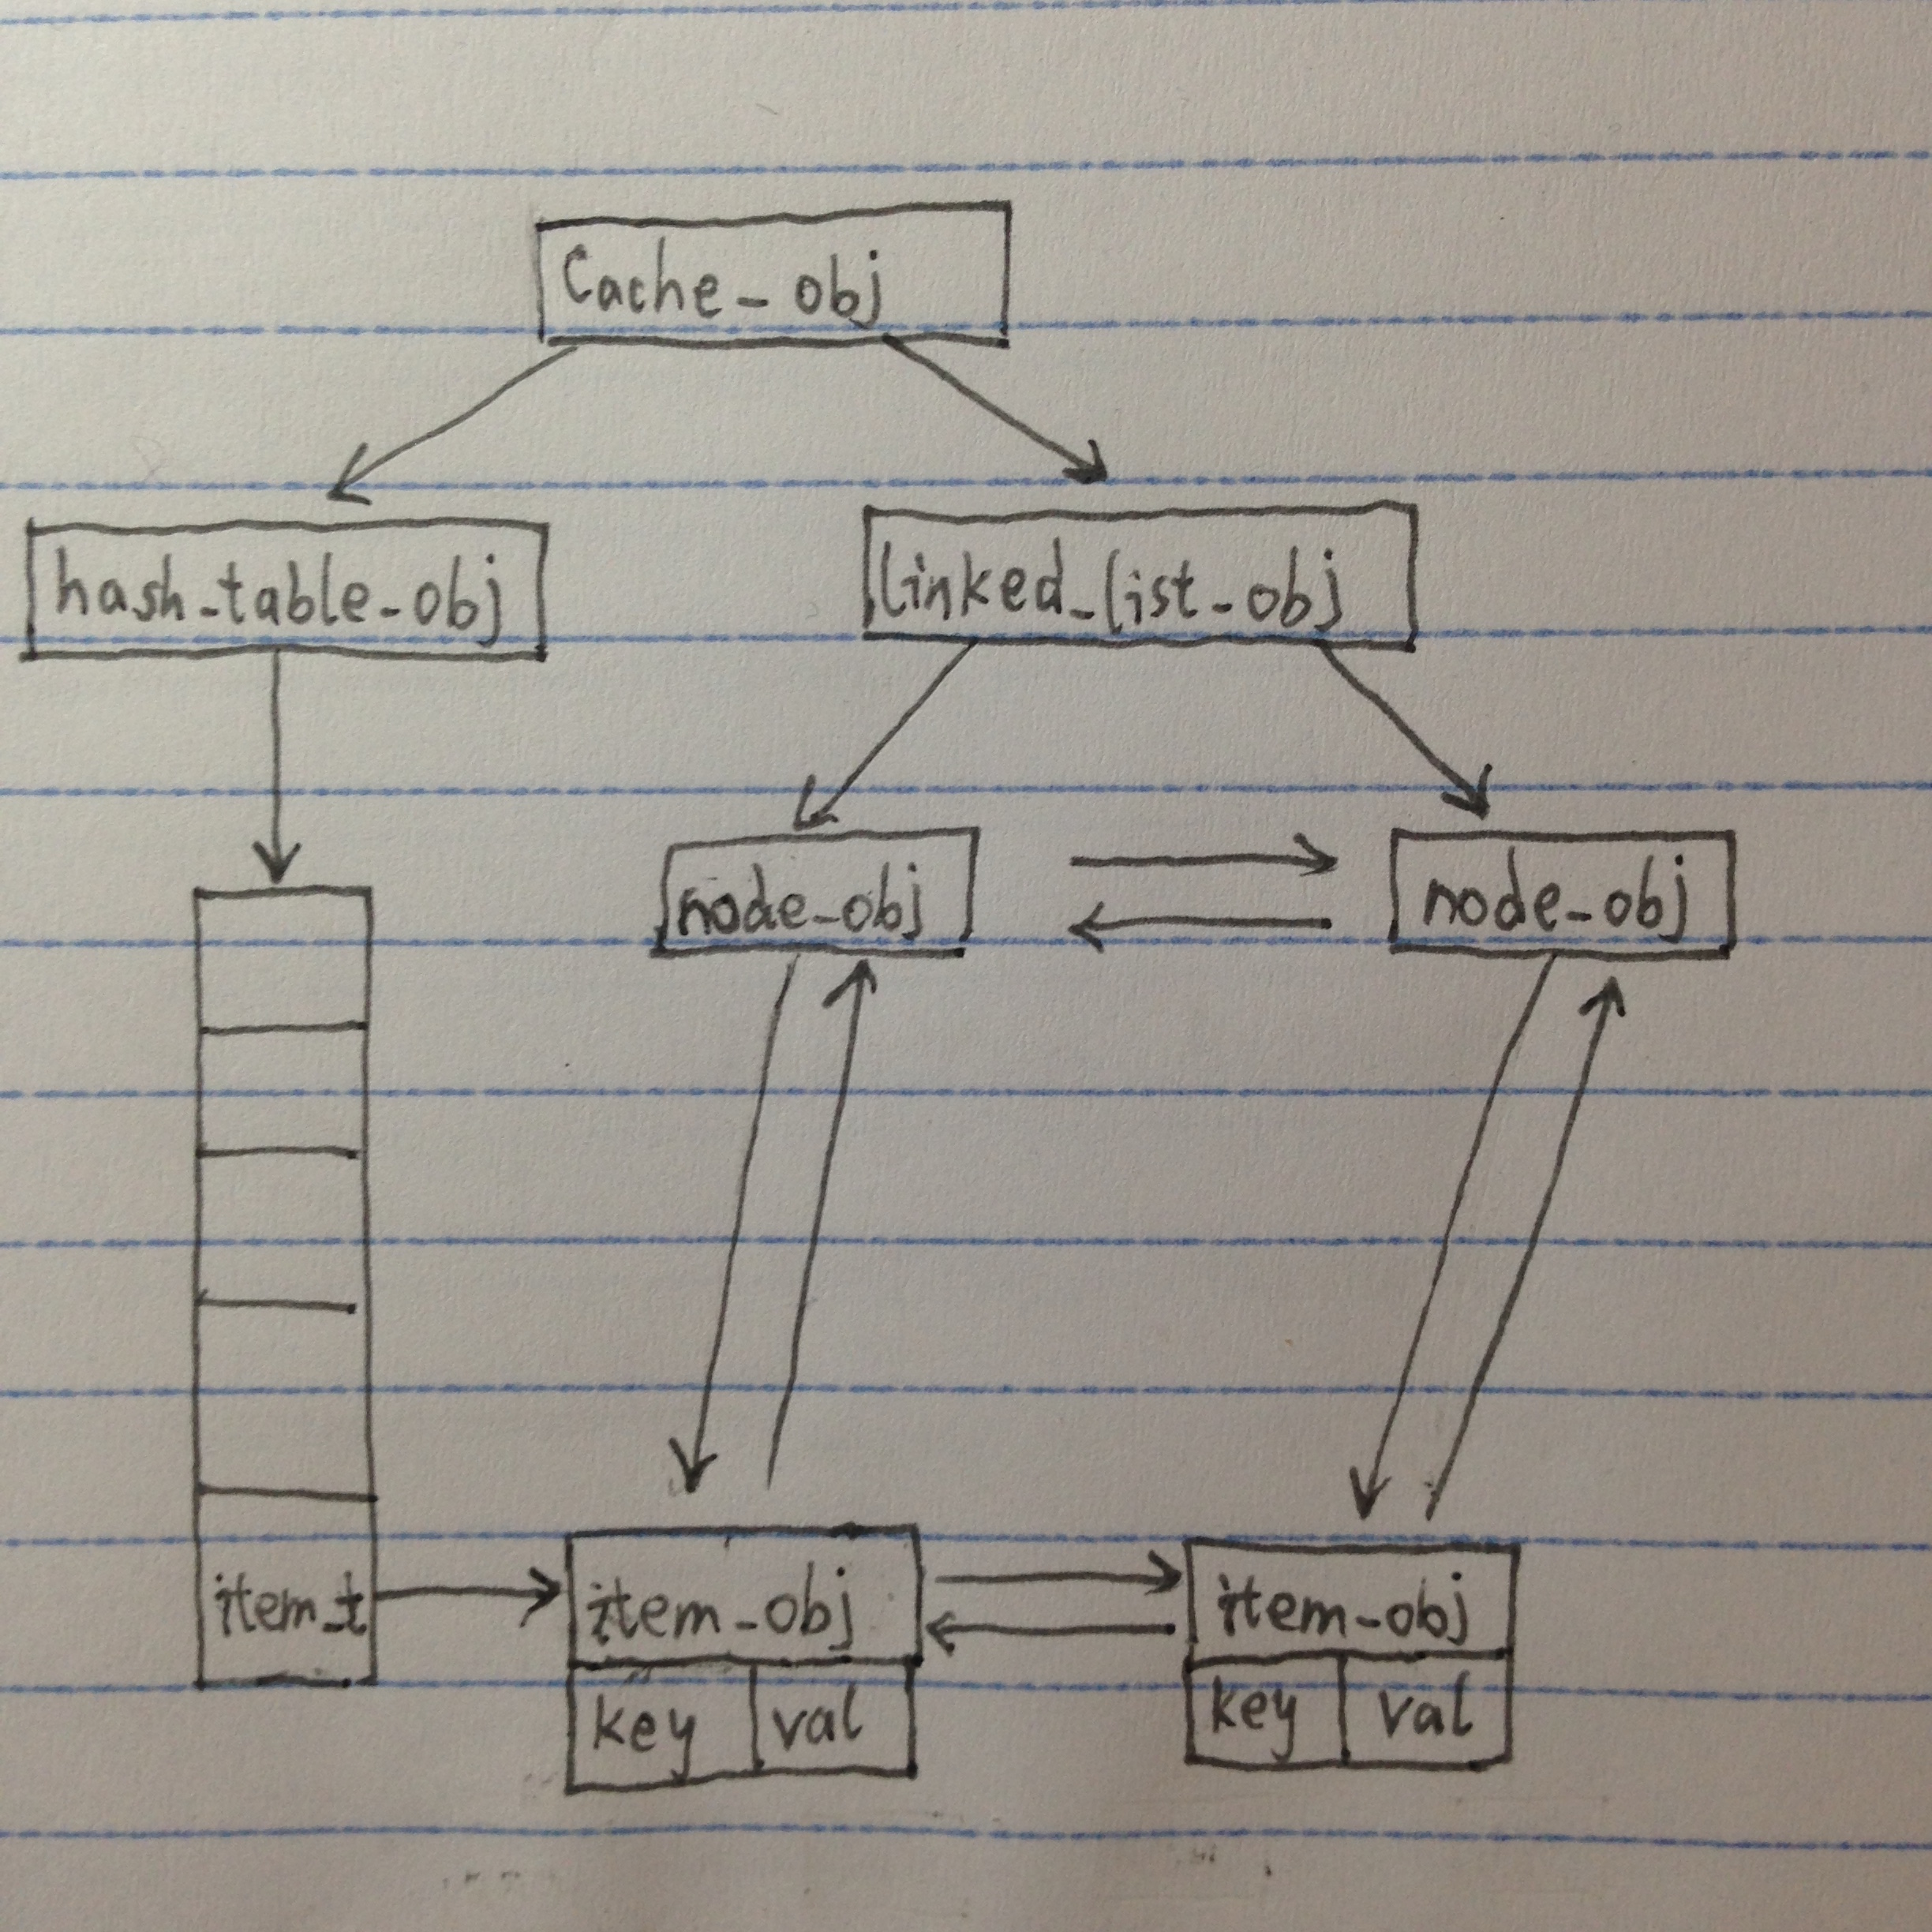 Cache_obj
hash_table_obj
linked_list_obj
node_obj
node_obj
item_t
item_obj
item_obj
key
val
key
val